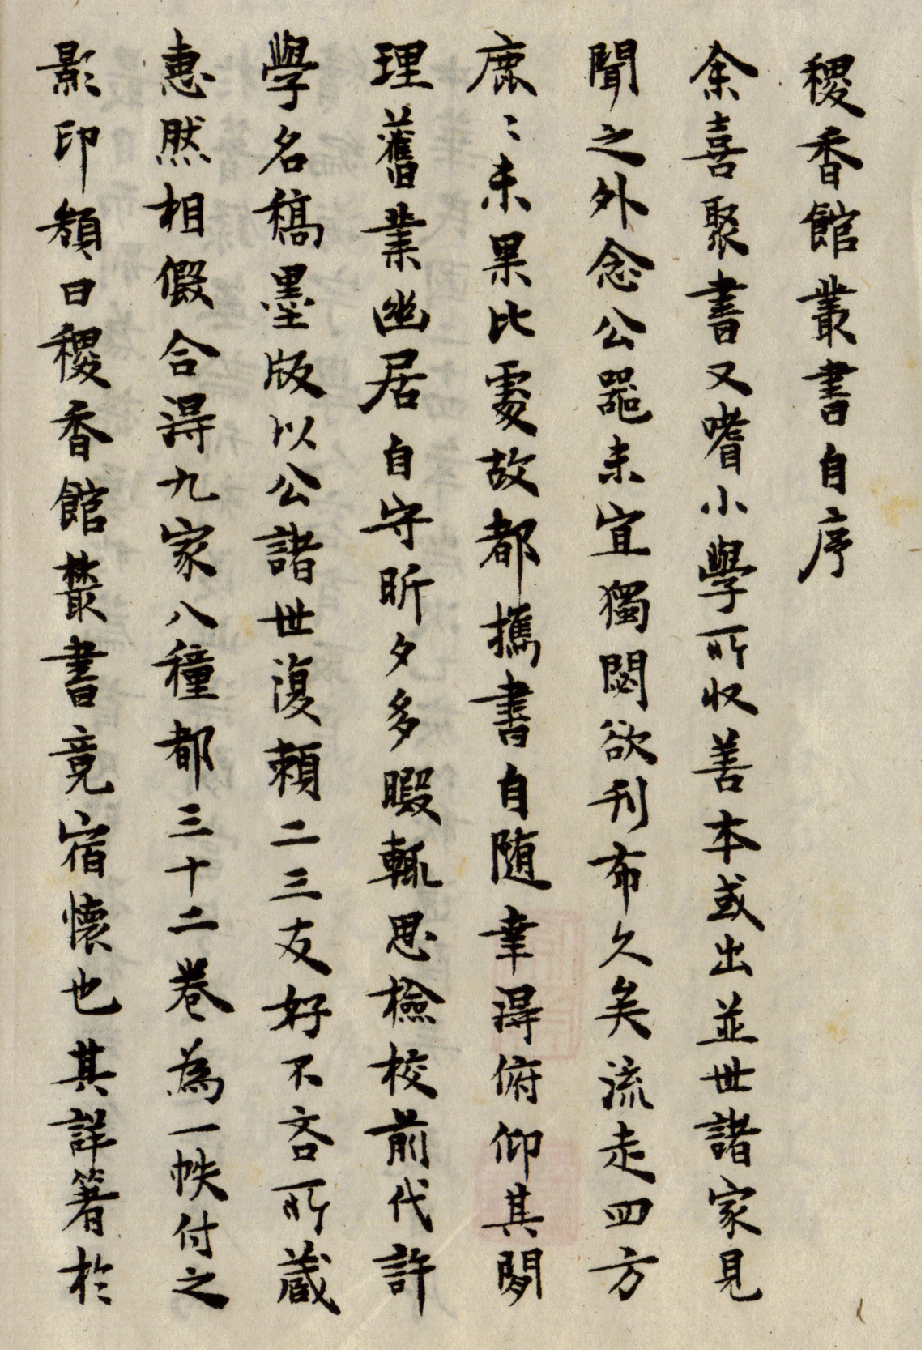 稷香館叢書自序
余喜聚書又嗜小學所收善本或出並世諸家見
聞之外念公器未宜獨閟欲刊布久矣流走四方
鹿〻未果比處故都攜書自隨幸得俯仰其閒
理舊業幽居自守昕夕多暇輒思檢校前代許
學名稿墨版以公諸世復賴二三友好不吝所藏
惠然相假合得九家八種都三十二卷為一帙付之
影印額曰稷香館叢書竟宿懷也其詳箸於